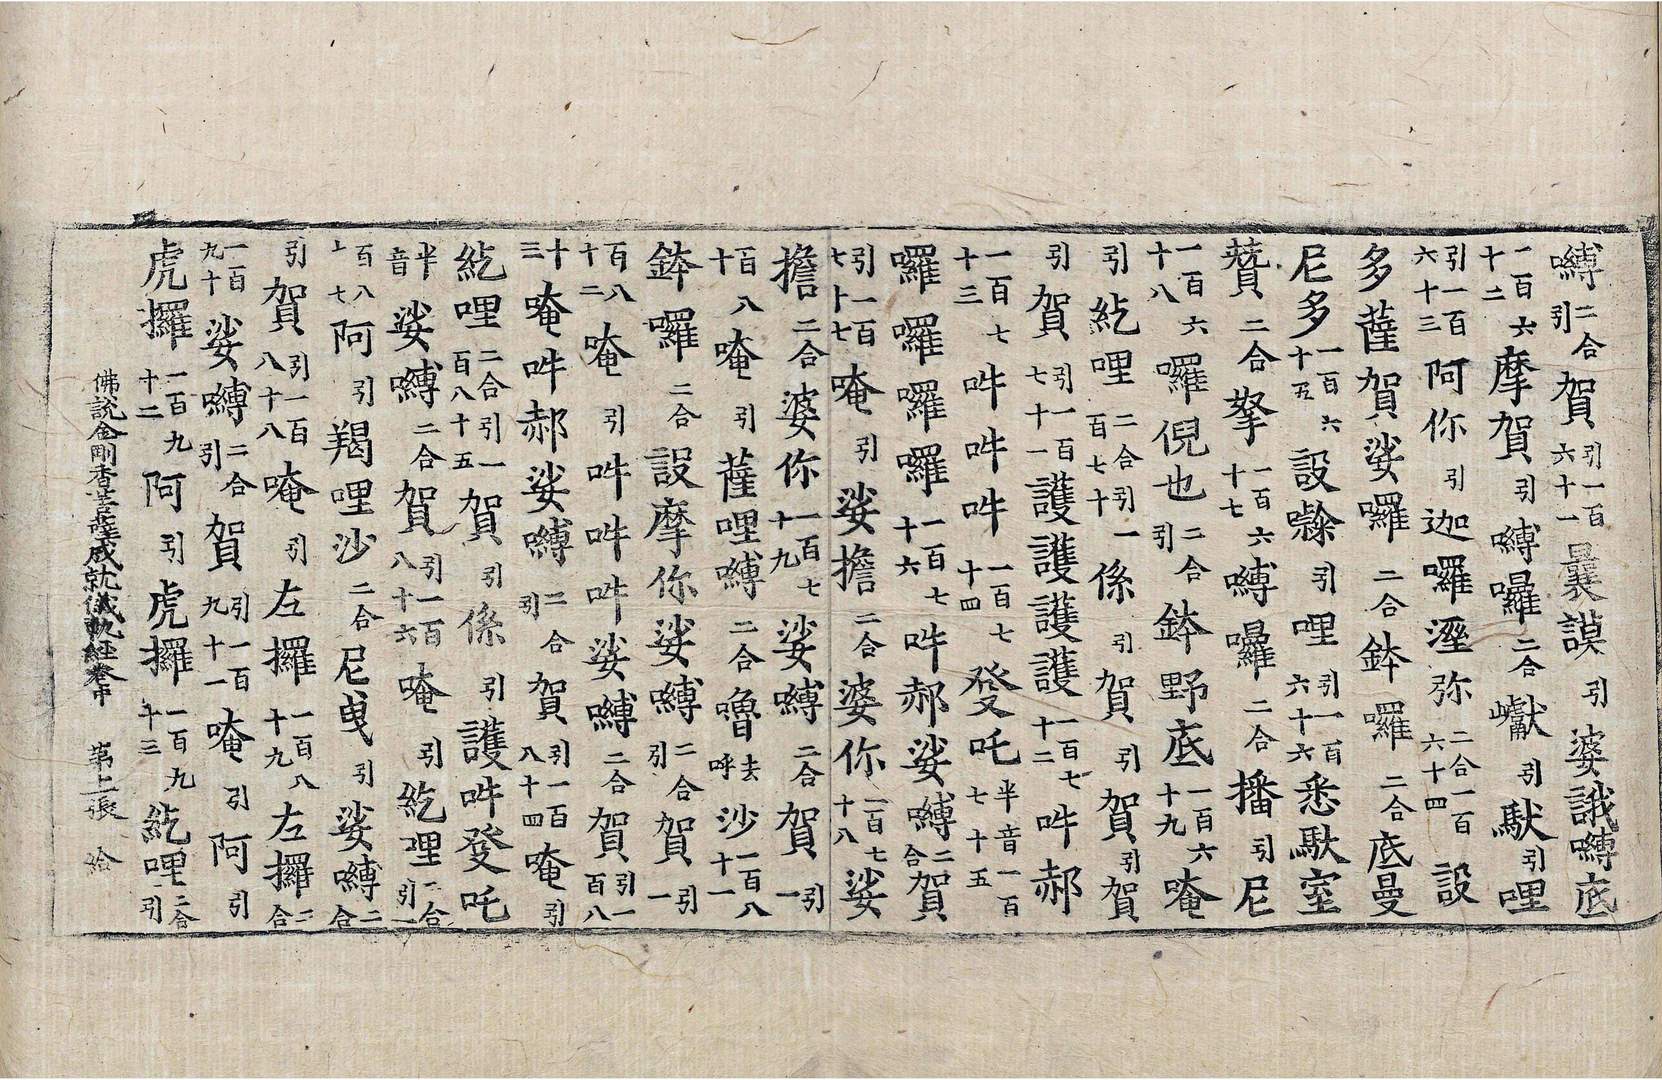 嚩二合引賀引一百六十一曩謨引婆誐嚩底
一百六十二摩賀引嚩囉二合巘引馱引哩
引一百六十三阿你引迦囉溼弥二合一百六十四設
多薩賀娑囉二合鉢囉二合底曼
尼多一百六十五設㗚引哩引一百六十六悉馱室
賛二合拏一百六十七嚩囉二合播引尼
一百六十八囉倪也二合引鉢野底一百六十九唵
引紇哩二合引一百七十係引賀引賀引賀
引賀引一百七十一護護護護一百七十二吽郝
一百七十三吽吽吽一百七十四發吒半音一百七十五
囉囉囉囉一百七十六吽郝娑嚩二合賀
引一百七十七唵引娑擔二合婆你一百七十八娑
擔二合婆你一百七十九娑嚩二合賀引一
百八十唵引薩哩嚩二合魯去呼沙一百八十一
鉢囉二合設摩你娑嚩二合引賀引一
百八十二唵引吽吽吽娑嚩二合賀引一百八
十三唵吽郝娑嚩二合引賀引一百八十四唵引
紇哩二合引一百八十五賀引係引護吽發吒
半音娑嚩二合賀引一百八十六唵引紇哩二合引一
百八十七阿引羯哩沙二合尼曳引娑嚩二合
引賀引一百八十八唵引左攞一百八十九左攞二合
一百九十娑嚩二合引賀引一百九十一唵引阿引
虎攞一百九十二阿引虎攞一百九十三紇哩二合引
佛說金剛香菩薩成就儀軌經卷中 第七張 給